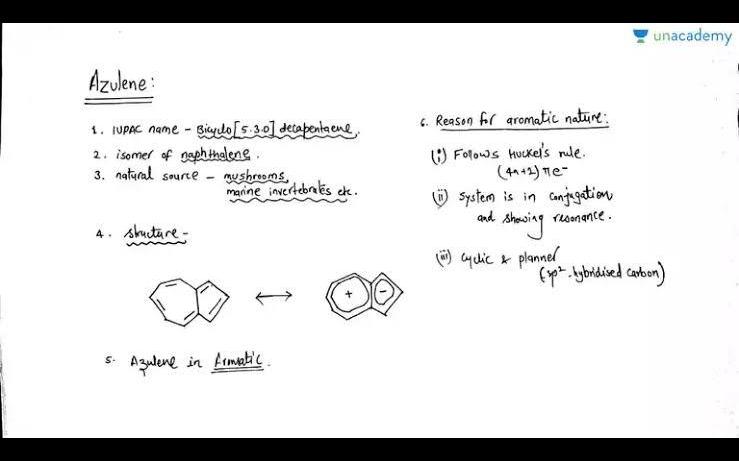 unacademy
Azulene:
1. IUPAC name - Bicyclo[5.3.0] decapentaene.
2. isomer of naphthalene.
3. natural source - mushrooms,
marine invertebrates etc.
4. structure -
+ -
5. Azulene in Aromatic.
6. Reason for aromatic nature:
(i) Follows Huckel's rule.
(4n+2) πe-
(ii) System is in conjugation
and showing resonance.
(iii) cyclic & planner
(sp². hybridised carbon)